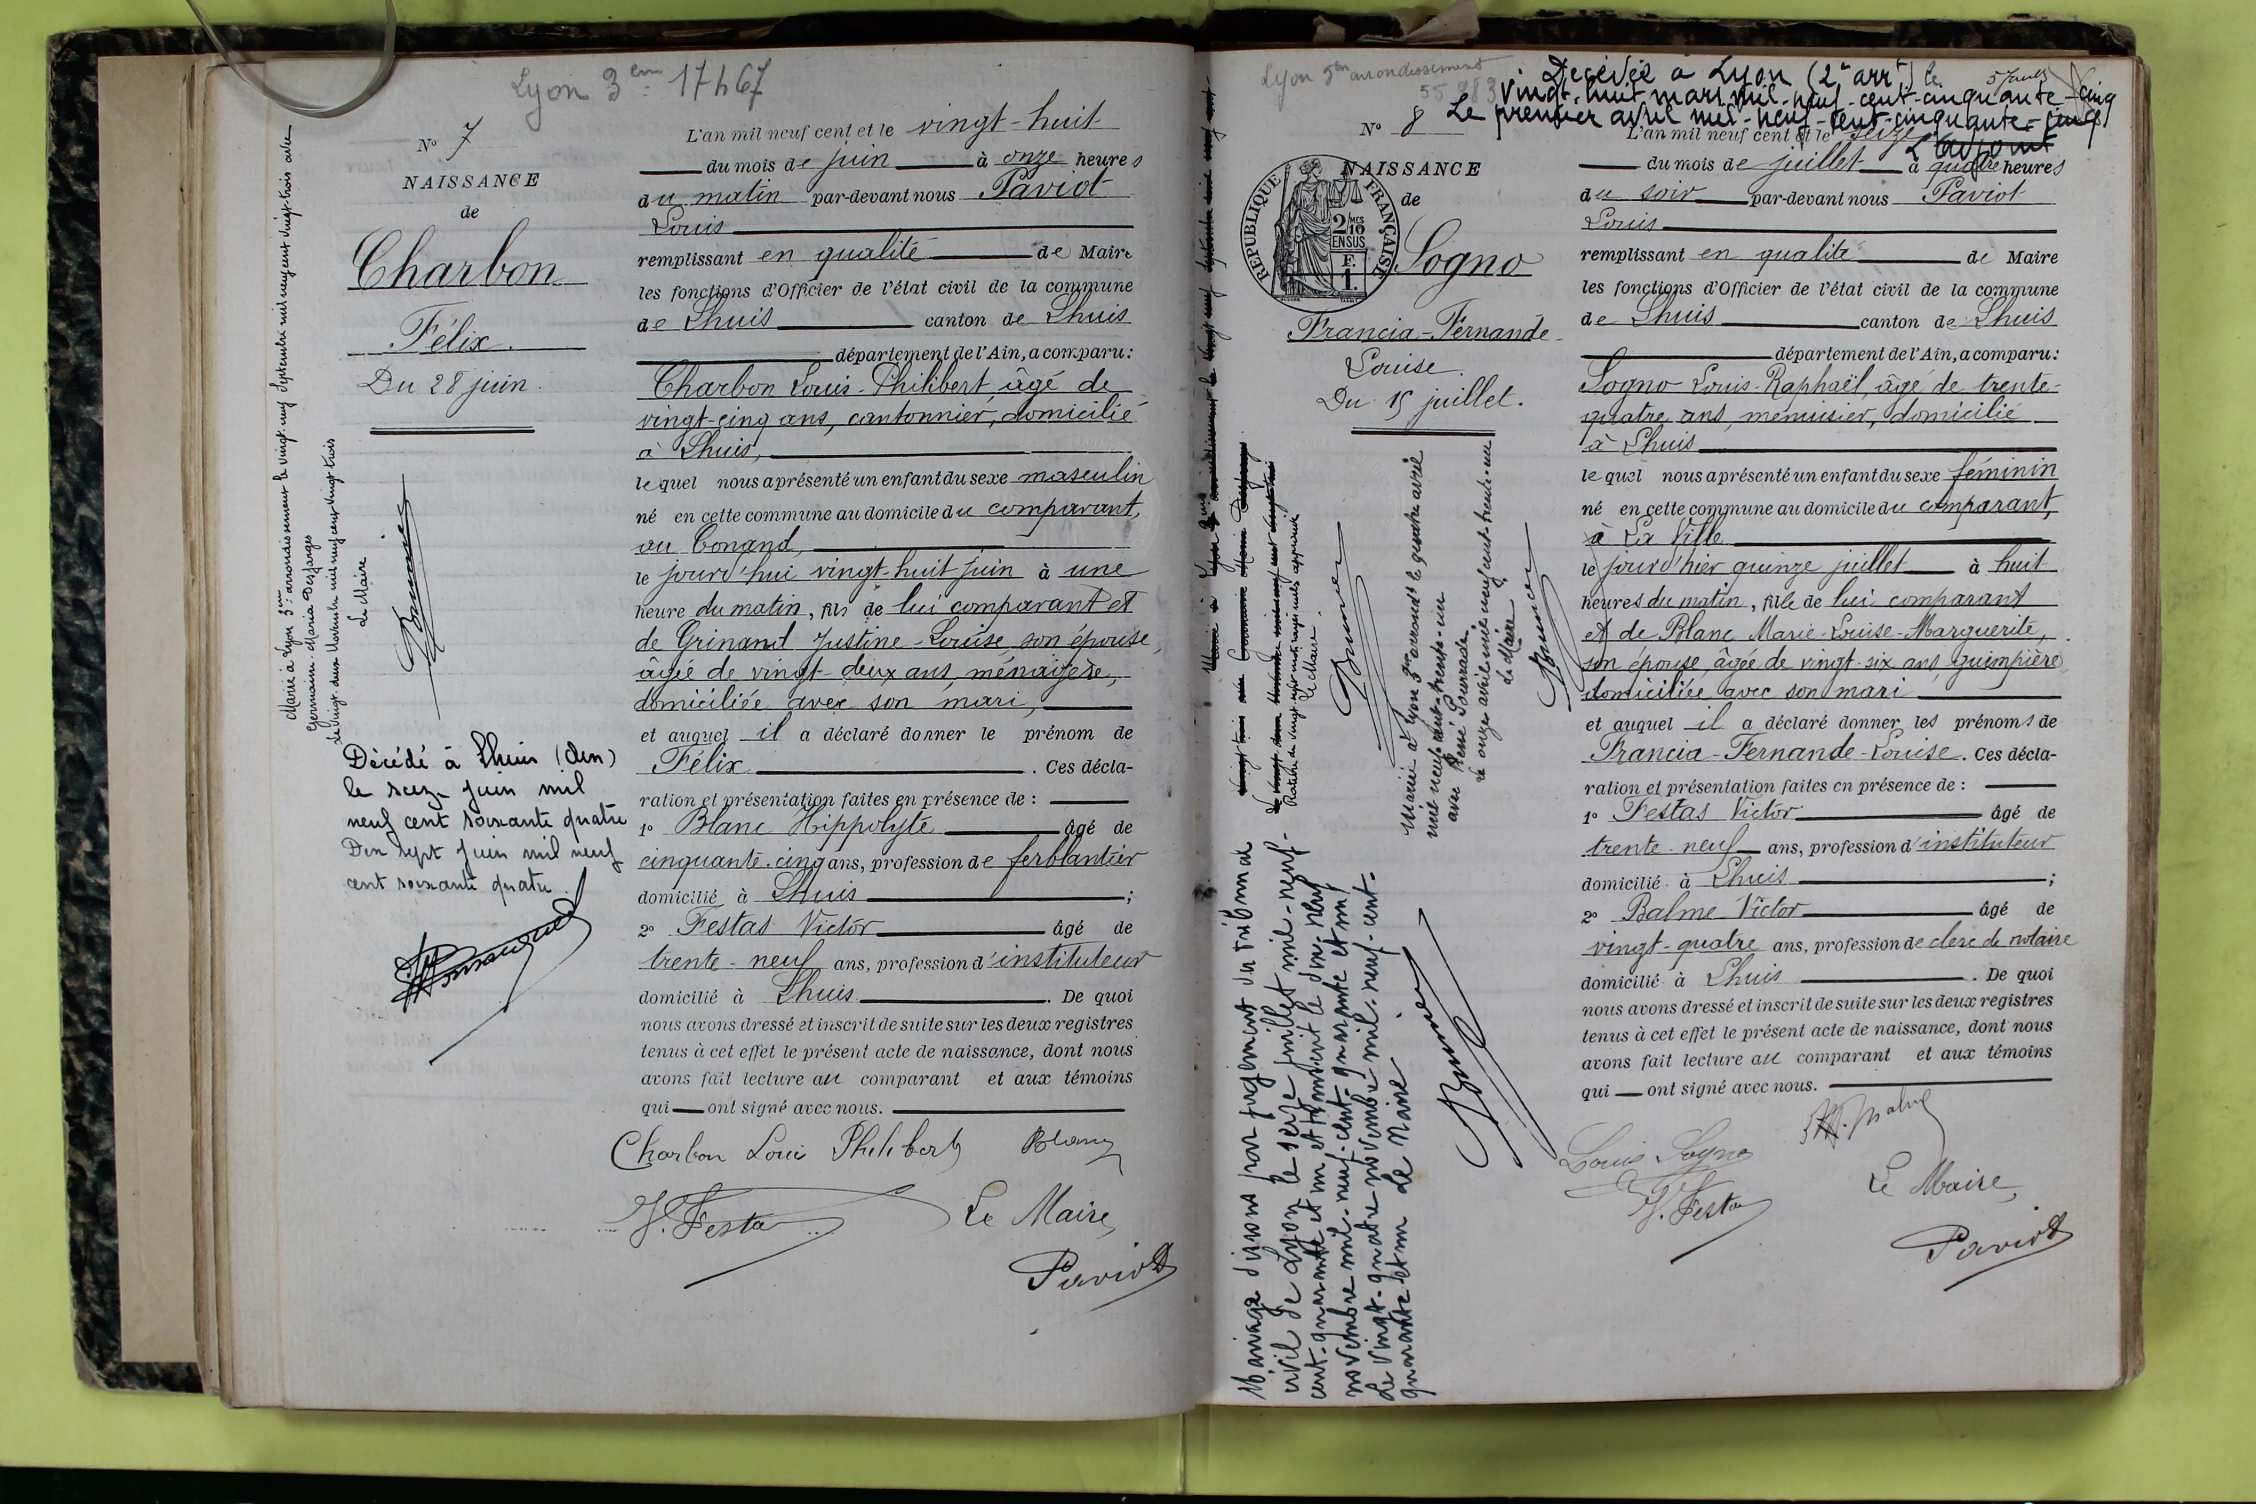 Lyon 3em 17h67
N° 7
NAISSANCE
de
Charbon
Félix.
Du 28 juin.
Marié à Lyon 3em arrondissement le vingt neuf Septembre mil neuf cent vingt trois avec
Germaine Maria Desfarges
le vingt deux Novembre mil neuf cent vingt trois
Le Maire
Décédé à Lhuis (Ain)
le seize juin mil
neuf cent soixante quatre
Dix sept juin mil neuf
cent soixante quatre.
L'an mil neuf cent et le vingt-huit
du mois de juin à onze heures
du matin par-devant nous Paviot
Louis
remplissant en qualité de Maire
les fonctions d'Officier de l'état civil de la commune
de Lhuis canton de Lhuis
département de l'Ain, a comparu:
Charbon Louis-Philibert, âgé de
vingt-cinq ans, cantonnier, domicilié
à Lhuis,
lequel nous a présenté un enfant du sexe masculin
né en cette commune au domicile du comparant,
au Conand,
le jourd'hui vingt-huit juin à une
heure du matin, fils de lui comparant et
de Grinand Justine-Louise, son épouse,
âgée de vingt-deux ans, ménagère,
domiciliée avec son mari,
et auquel il a déclaré donner le prénom de
Félix. Ces décla-
ration et présentation faites en présence de :
1° Blanc Hippolyte âgé de
cinquante-cinq ans, profession de ferblantier
domicilié à Lhuis ;
2° Festas Victor âgé de
trente-neuf ans, profession d'instituteur
domicilié à Lhuis. De quoi
nous avons dressé et inscrit de suite sur les deux registres
tenus à cet effet le présent acte de naissance, dont nous
avons fait lecture au comparant et aux témoins
qui ont signé avec nous.
Charbon Loui Philibert Blanc
V. Festas
Le Maire,
Paviot
Lyon 3em arrondissement
Décédée à Lyon (2e arrt) le
vingt-huit mars mil-neuf-cent-cinquante-cinq
Le premier avril mil-neuf-cent-cinquante-cinq
L'adjoint
N° 8
NAISSANCE
de
REPUBLIQUE FRANÇAISE
2 MES
10
EN SUS
F.
1.
Sogno
Francia-Fernande-
Louise.
Du 15 juillet.
Le Maire.
Mariée à Lyon 3em arrondt le quatre avril
mil neuf cent trente-un
avec René Pourrade.
Le onze avril mil neuf cent trente-un
Le Maire
Mariage dissous par jugement du tribunal
civil de Lyon le seize juillet mil-neuf-
cent-quarante et un, et transcrit le dix-neuf
novembre mil-neuf-cent-quarante et un,
Le vingt-quatre novembre mil-neuf-cent-
quarante et un Le Maire.
L'an mil neuf cent et le seize
du mois de juillet à quatre heures
du soir par-devant nous Paviot
Louis
remplissant en qualité de Maire
les fonctions d'Officier de l'état civil de la commune
de Lhuis canton de Lhuis
département de l'Ain, a comparu:
Sogno Louis-Raphaël, âgé de trente-
quatre ans, menuisier, domicilié
à Lhuis
lequel nous a présenté un enfant du sexe féminin
né en cette commune au domicile du comparant,
à La Ville
le jourd'hier quinze juillet à huit
heures du matin, fille de lui comparant
et de Blanc Marie-Louise-Marguerite,
son épouse, âgée de vingt-six ans, guimpière
domiciliée avec son mari
et auquel il a déclaré donner les prénoms de
Francia-Fernande-Louise. Ces décla-
ration et présentation faites en présence de :
1° Festas Victor âgé de
trente-neuf ans, profession d'instituteur
domicilié à Lhuis ;
2° Balme Victor âgé de
vingt-quatre ans, profession de clerc de notaire
domicilié à Lhuis. De quoi
nous avons dressé et inscrit de suite sur les deux registres
tenus à cet effet le présent acte de naissance, dont nous
avons fait lecture au comparant et aux témoins
qui ont signé avec nous.
Louis Sogno
V. Festas
Le Maire,
Paviot